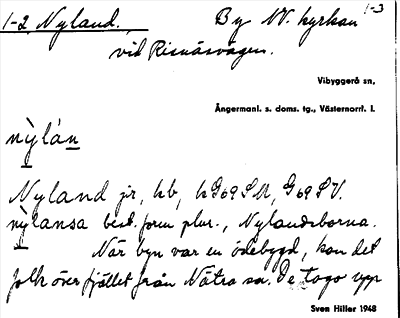 1-2 Nyland. By NV. kyrkan 1-3
vid Risnäsvägen.
Vibyggerå sn,
Ångermanl. s. doms. tg., Västernorrl. l.
nỳlán
Nyland jr, kb, hG69SM, G69SV.
nỳlansa best. form plur., Nylandsborna.
När byn var en ödebygd, kom det
folk över fjället från Nätra sn. De togo upp
Sven Hiller 1948